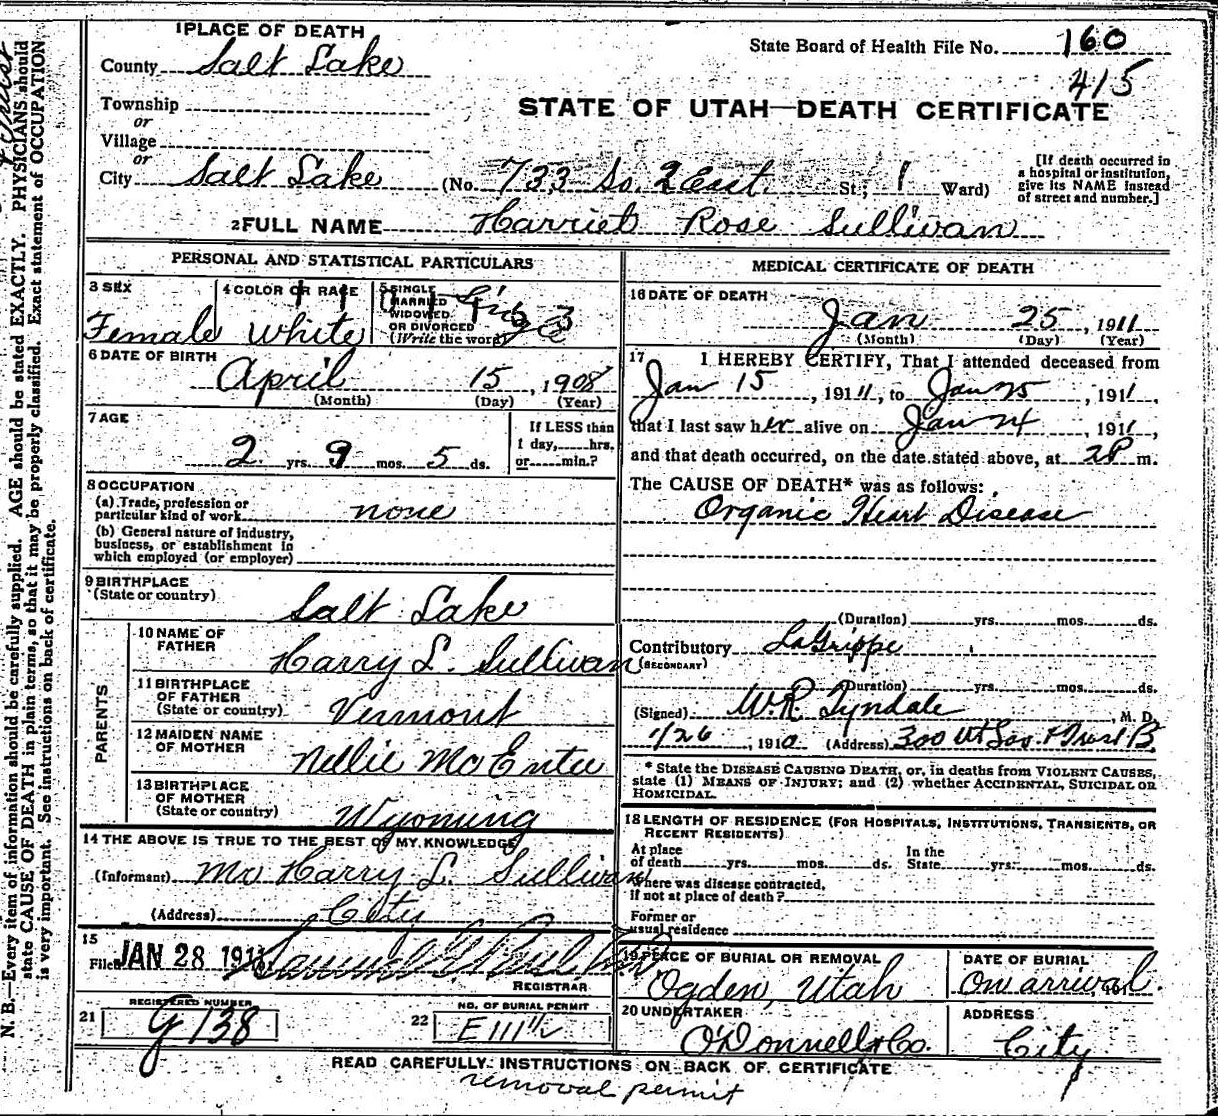 1 PLACE OF DEATH
County Salt Lake
Township
or
Village
or
City Salt Lake
State Board of Health File No. 160
415
STATE OF UTAH—DEATH CERTIFICATE
(No. 733 So. 2 East St.; 1 Ward)
[If death occurred in
a hospital or institution,
give its NAME instead
of street and number.]
2 FULL NAME Harriet Rose Sullivan
PERSONAL AND STATISTICAL PARTICULARS
3 SEX
Female
4 COLOR OR RACE
White
5 SINGLE
MARRIED
WIDOWED
OR DIVORCED
(Write the word)
Single
6 DATE OF BIRTH
April 15, 1908
(Month) (Day) (Year)
7 AGE
2 yrs. 9 mos. 5 ds.
If LESS than
1 day, hrs.
or min.?
8 OCCUPATION
(a) Trade, profession or
particular kind of work none
(b) General nature of industry,
business, or establishment in
which employed (or employer)
9 BIRTHPLACE
(State or country)
Salt Lake
PARENTS
10 NAME OF
FATHER
Harry L. Sullivan
11 BIRTHPLACE
OF FATHER
(State or country)
Vermont
12 MAIDEN NAME
OF MOTHER
Nellie McEntee
13 BIRTHPLACE
OF MOTHER
(State or country)
Wyoming
14 THE ABOVE IS TRUE TO THE BEST OF MY KNOWLEDGE
(Informant) Mr Harry L. Sullivan
(Address) City
15
Filed JAN 28 1911
REGISTRAR
21
REGISTERED NUMBER
G 138
22
NO. OF BURIAL PERMIT
MEDICAL CERTIFICATE OF DEATH
16 DATE OF DEATH
Jan 25, 1911
(Month) (Day) (Year)
17 I HEREBY CERTIFY, That I attended deceased from
Jan 15, 1911, to Jan 25, 1911,
that I last saw her alive on Jan 24, 1911,
and that death occurred, on the date stated above, at 2P m.
The CAUSE OF DEATH* was as follows:
Organic Heart Disease
(Duration) yrs. mos. ds.
Contributory LaGrippe
(SECONDARY)
(Duration) yrs. mos. ds.
(Signed) W.R. Tyndale, M. D.
1/26, 1910 (Address) 300 Ut Sav. & Trust B.
* State the DISEASE CAUSING DEATH, or, in deaths from VIOLENT CAUSES,
state (1) MEANS OF INJURY; and (2) whether ACCIDENTAL, SUICIDAL OR
HOMICIDAL.
18 LENGTH OF RESIDENCE (FOR HOSPITALS, INSTITUTIONS, TRANSIENTS, OR
RECENT RESIDENTS)
At place
of death yrs. mos. ds.
In the
State yrs. mos. ds.
Where was disease contracted,
if not at place of death?
Former or
usual residence
19 PLACE OF BURIAL OR REMOVAL
Ogden, Utah
DATE OF BURIAL
On arrival
20 UNDERTAKER
O'Donnell & Co.
ADDRESS
City
READ CAREFULLY INSTRUCTIONS ON BACK OF CERTIFICATE
removal permit
N. B.—Every item of information should be carefully supplied. AGE should be stated EXACTLY. PHYSICIANS should
state CAUSE OF DEATH in plain terms, so that it may be properly classified. Exact statement of OCCUPATION
is very important. See instructions on back of certificate.